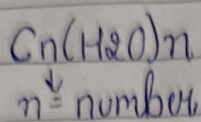 Cn(H2O)n
↓
n = number